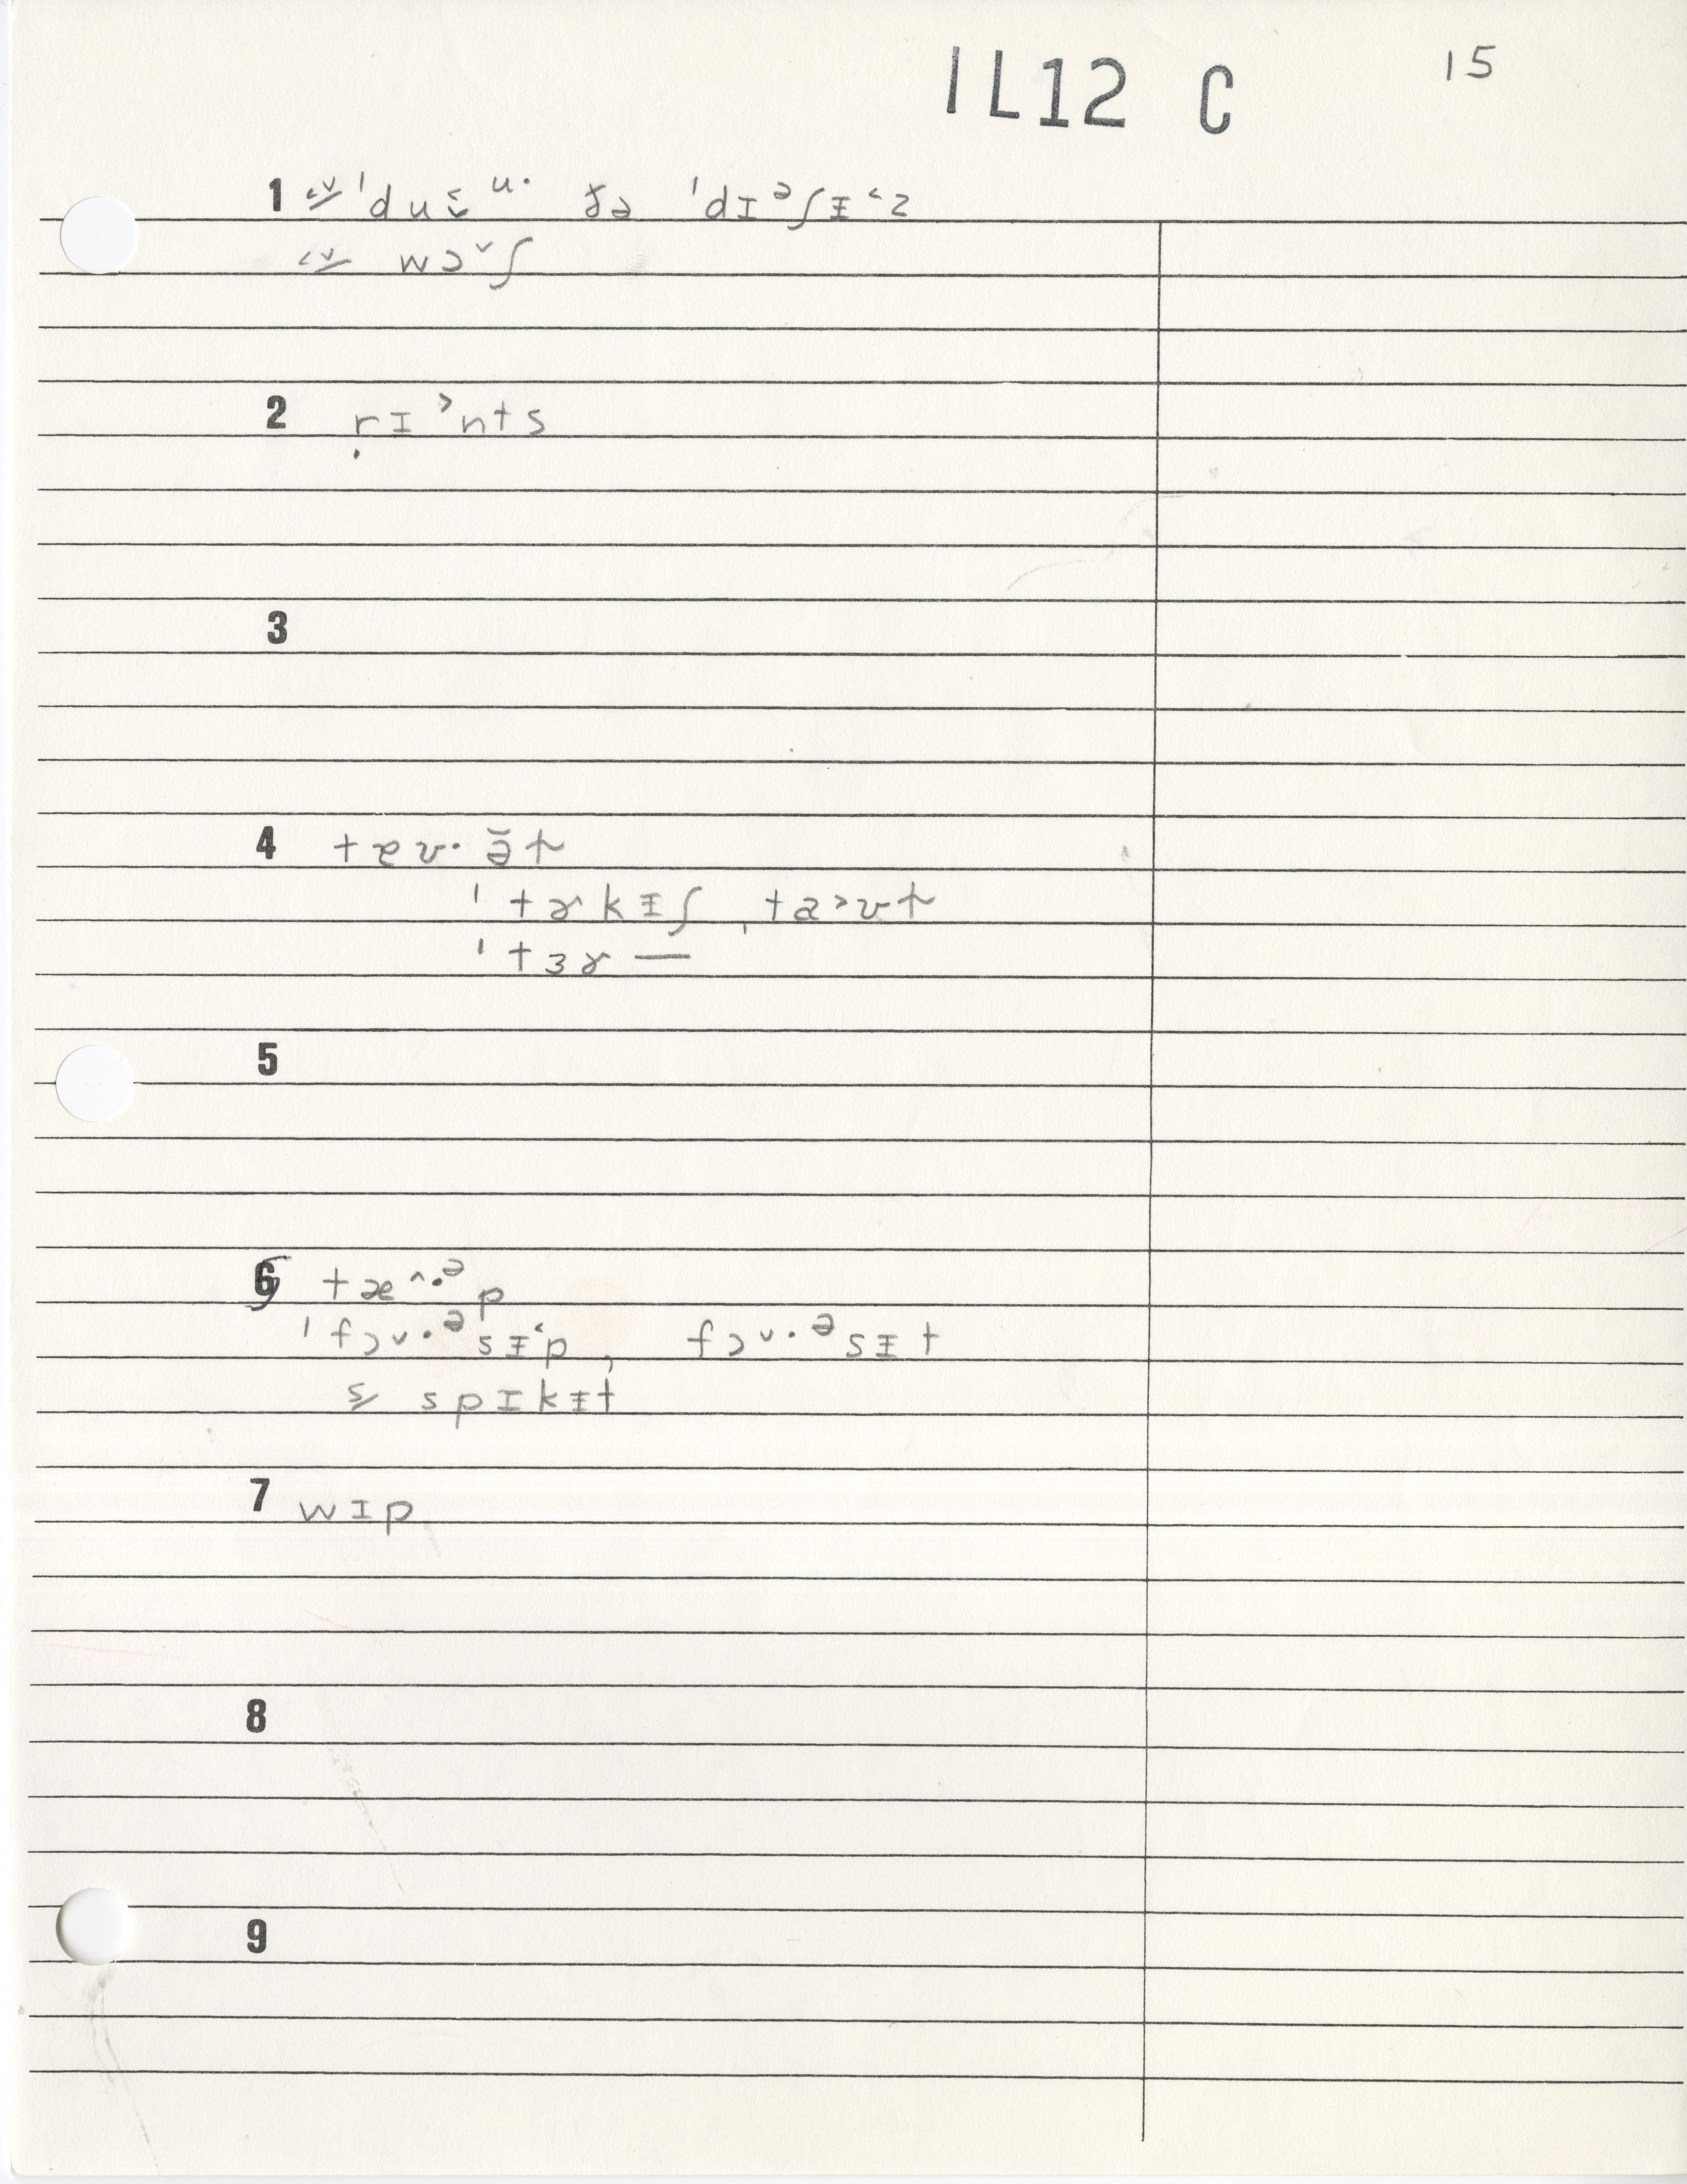 IL12 C 15
1 ˈdu u· ðə ˈdɪᵊʃɨ˂z
wɔˇʃ
2 ṛɪ˃nts
3
4 tɐʊ· ə̄t
ˈtɚkɨʃ ˌta˃ʊt
ˈtɜɚ —
5
6 tæ^·ᵊp
ˈfɔˇ·ᵊsɨ˂p, fɔˇ·ᵊsɨt
s/ spɪkɨt
7 wɪp
8
9